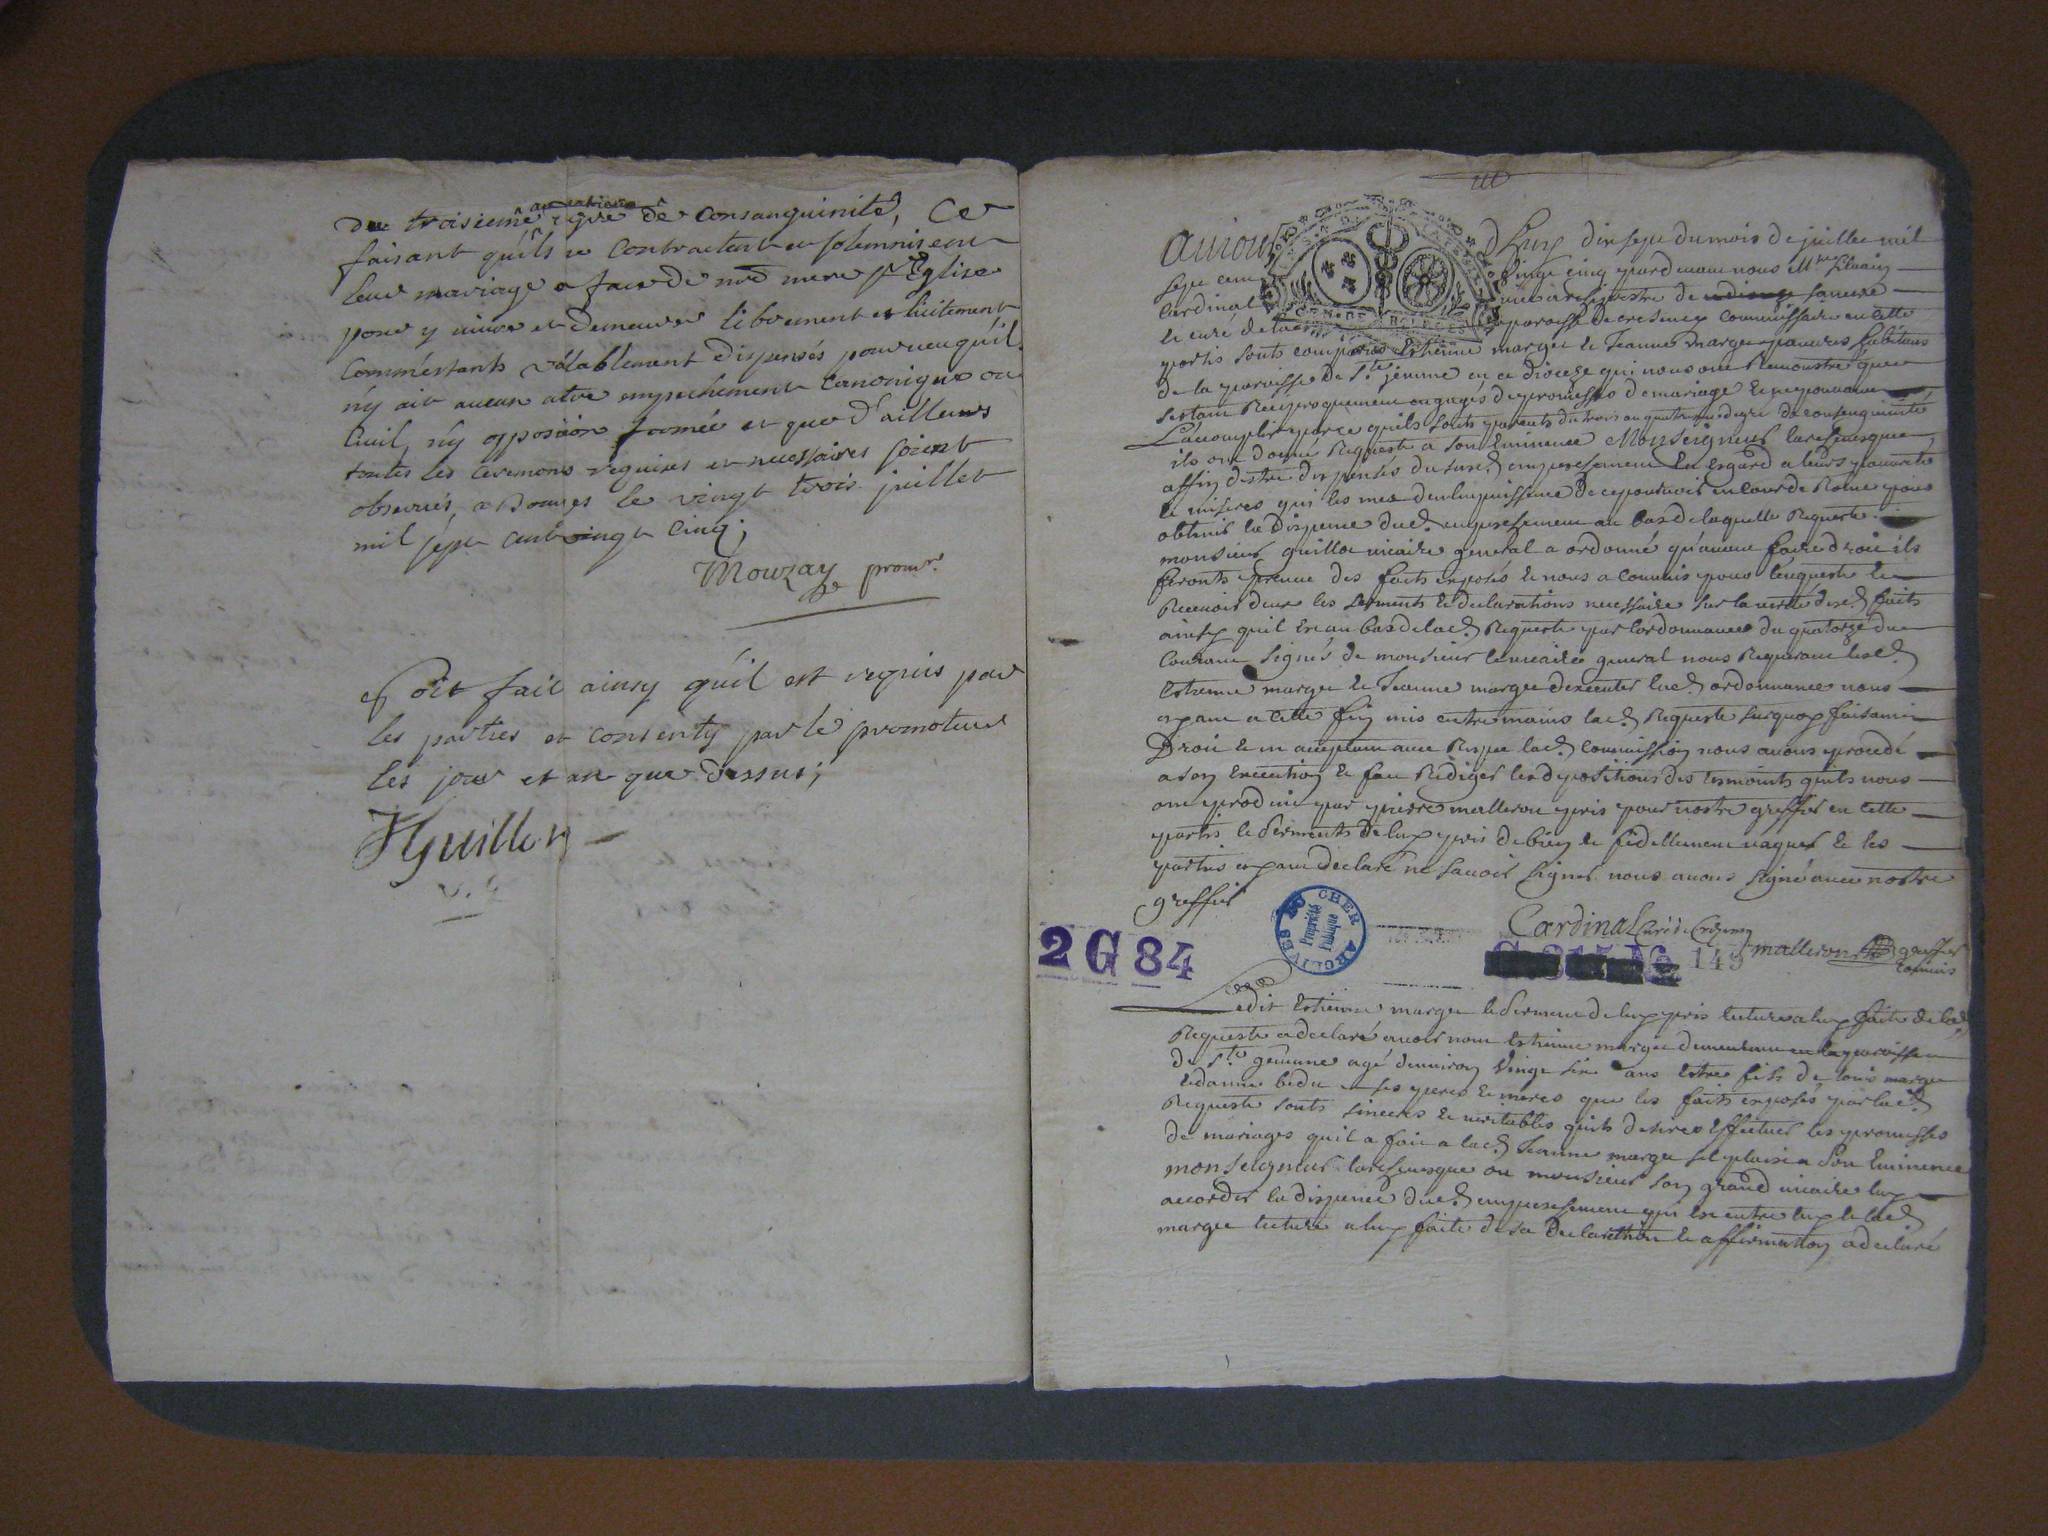 du troisieme au quatrieme degre de consanguinité, Ce
faisant quils se contractent et solemnisent
leur mariage a face de nre mere Ste Eglise
pour y vivre et demeurer librement et licitement
Commestants valablement dispensés pourveu quil
n'y ait aucun atre empechement canonique ou
Civil, n'y opposition formée et que d'ailleurs
toutes les ceremons requises et necessaires soient
observés, a Bourges le vingt trois juillet
mil sept cent vingt cinq;
Mouzay promr.
Soit fait ainsy qu'il est requis par
les parties et consenty par le promoteur
les jour et an que dessus;
Guillot
v. g.
aujourdhuy dix sept du mois de juillet mil
sept cent vingt cinq pardevant nous Mre Silvain
Cardinal
le curé de la paroisse de Crezancy Commissaire en cette
partis sonts comparus Estienne margee et Jeanne margee pauvres habitans
de la paroisse de Ste jemme en ce dioceze qui nous ont Remonstré que
sestant Reciproquement engagés de promesses de mariage et ne pouvant
Lacomplir parce quils sonts parents du trois au quatrieme degre de consenguinité
ils ont donné Requeste a son Eminence Monseigneur larchevesque
affin destre dispensés du susd. empeschement En Esgard a leurs pauvreté
et miseres qui les met dans limpuissance de ce pourvoir en Cour de Rome pour
obtenir la dispense dud. empeschement au bas de laquelle Requeste
monsieur guillot vicaire general a ordonné quavant faire droit ils
feronts preuve des faits exposés et nous a Commis pour lenqueste et
Recevoir deux les serments et declarations necessaire sur la verité desd. faits
ainsy quil est au bas de lad. Requeste par lordonnance du quatorze du
Courant signés de monsieur le vicaire general nous Requerant lesd.
Estienne margee et Jeanne margee dexecuter lad. ordonnance nous
ayant a cette fin mis entre mains lad. Requeste surquoy faisant
Droit et en acceptant avec Respec lad. Commission nous avons procedé
a son Execution et fait Rediger les depositions des tesmoints quils nous
ont produit par pierre malleron pris pour nostre greffier en cette
partis le serments de luy pris de bien et fidellement vaquer et les
parties ayant declaré ne savoir signer nous avons signé avec nostre
greffier
Cardinal Curé de Crezancy
malleron greffier
Commis
ARCHIVES DU CHER
Propriété
Publique
2 G 84
149
Ledit Estienne margee le serment de luy pris lecture a luy faite de lad.
Requeste a declaré avoir nom Estienne margee demeurant en la paroisse
de Ste gemme agé denviron vingt six ans Estre fils de louis margee
et danne bedu ses peres et meres que les faits exposés par lad.
Requeste sonts sinceres et veritables quils desirent Effectuer les promesses
de mariages quil a fait a lad. Jeanne margee sil plaise a Son Eminence
monseigneur larchevesque ou monsieur son grand vicaire luy
accorder la dispense dud. empeschement qui est entre luy et lad.
margee lecture a luy faite de sa declarathion et affirmation a declaré